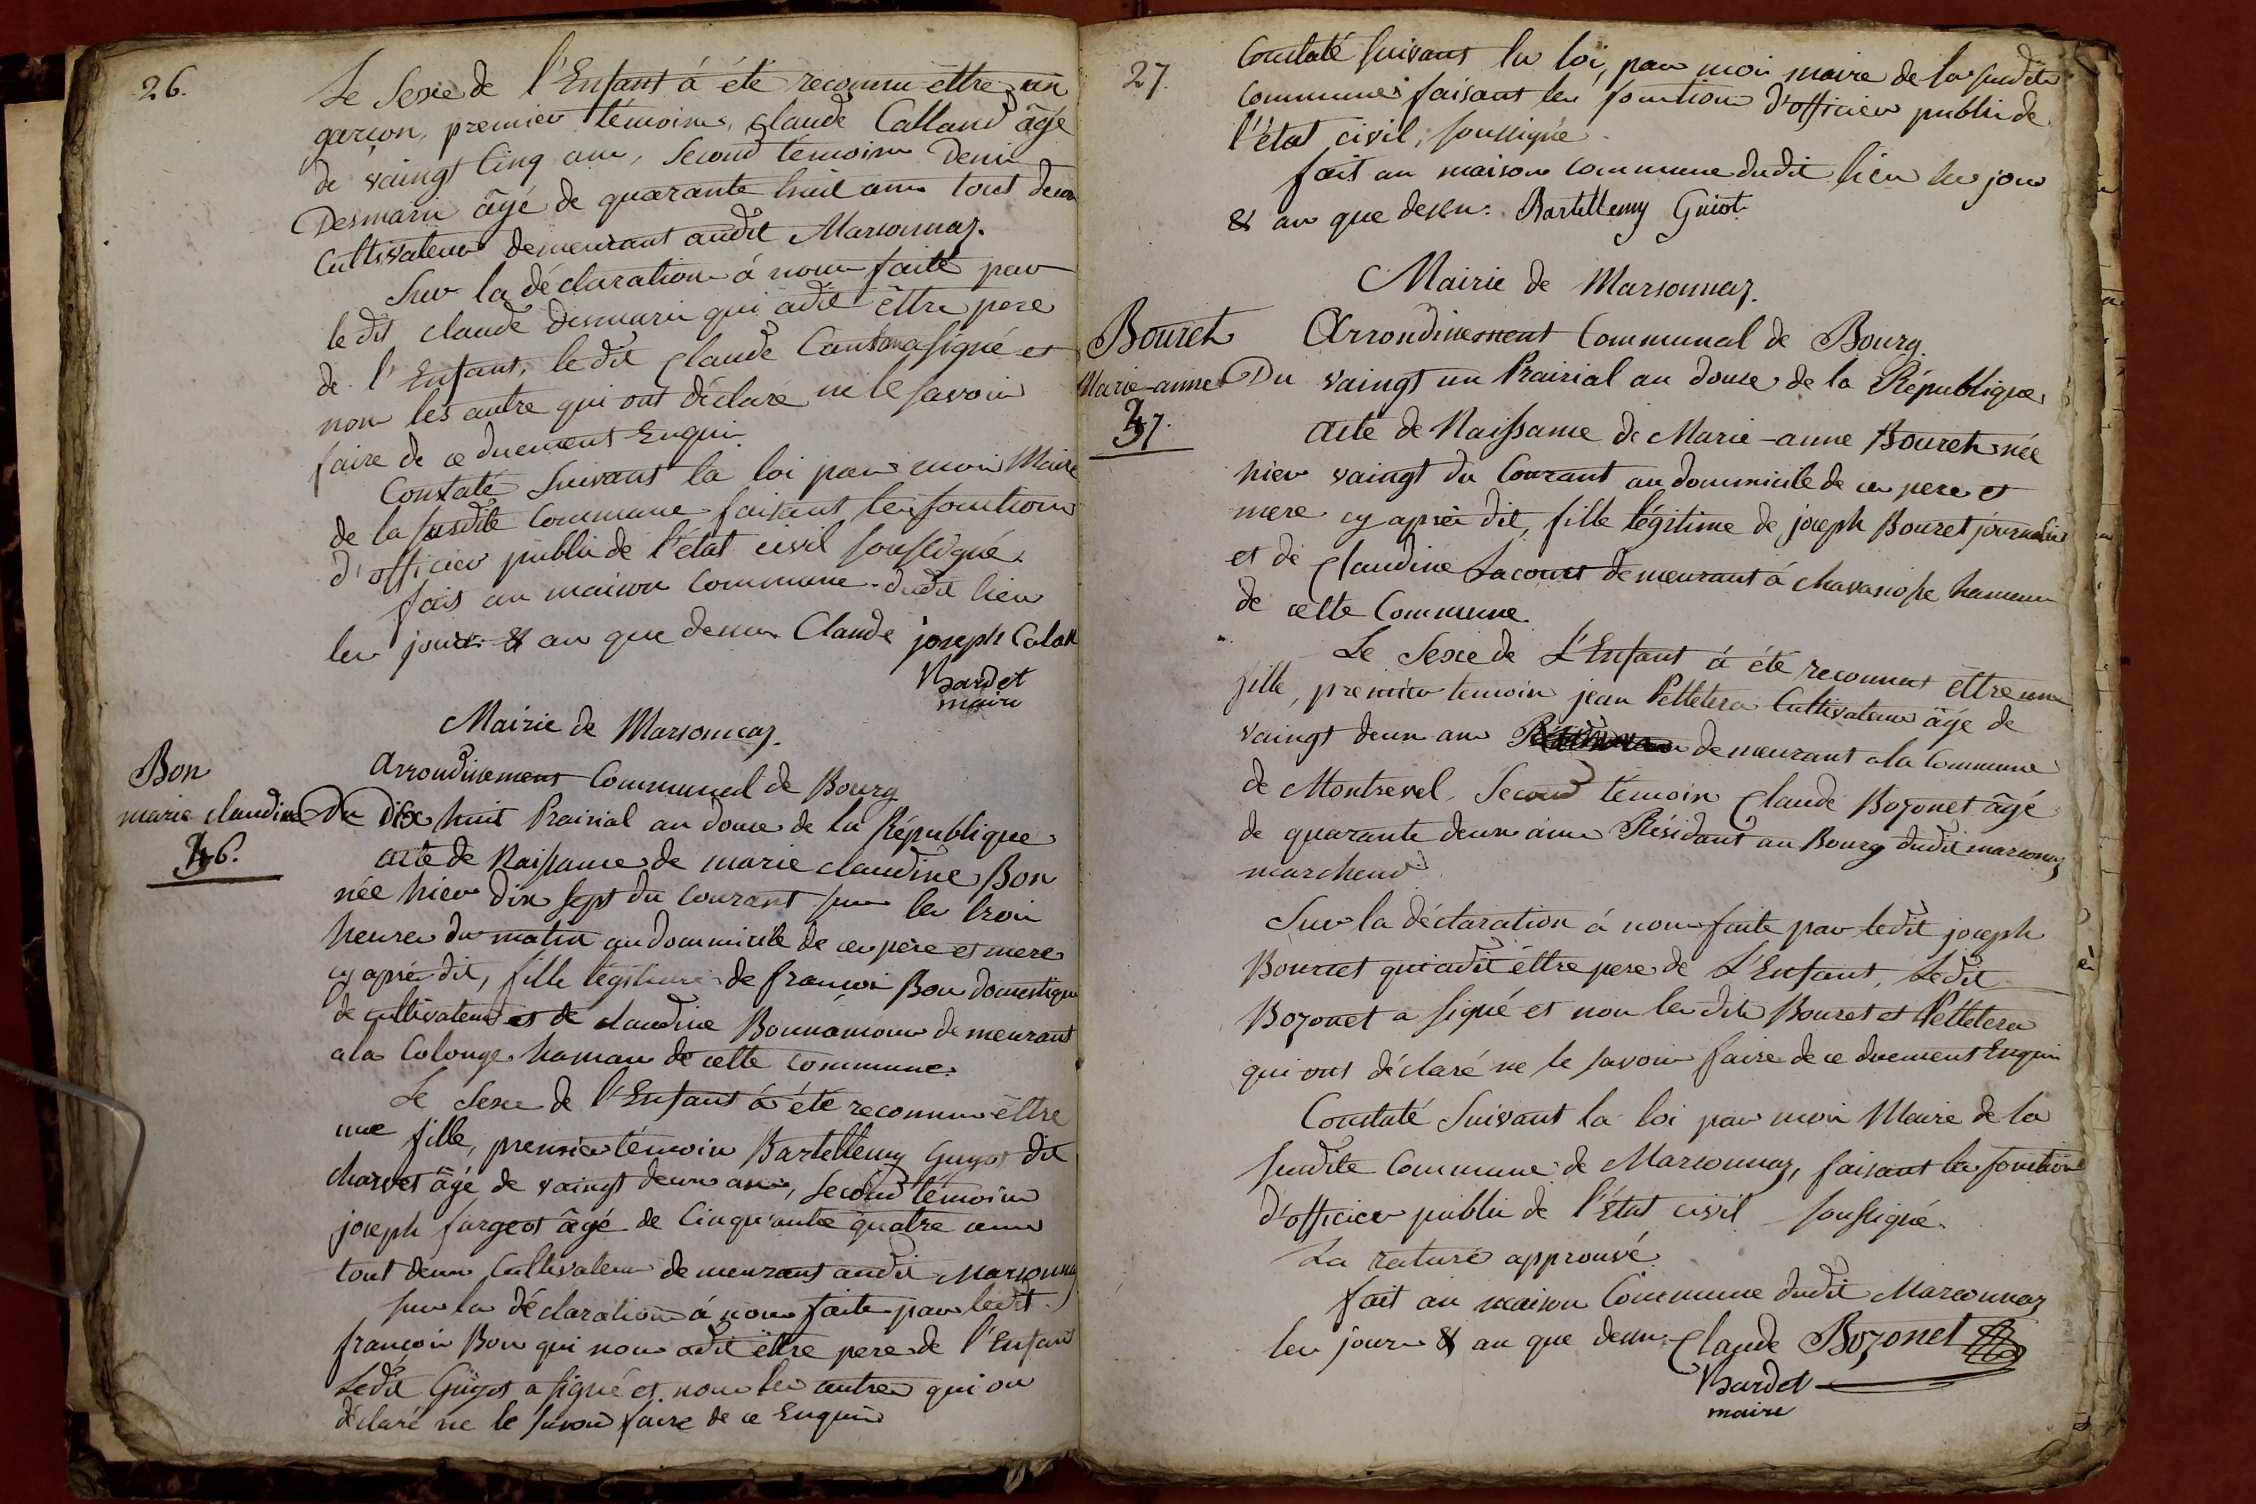 26.
Le Sexe de l'Enfant á été reconnu ettre un
garçon, premier témoins, Claude Calland âgé
de vaingt Cinq ans, Second témoins Denis
Desmaris âgé de quarante huit ans tout deux
Cultivateur demeurant audit Marsonnaz.
Sur la déclaration á nous faitte par
le dit Claude Desmaris qui adit ettre pere
de l'Enfant, le dit Claude signé et
non les autre qui ont déclaré ne le savoir
faire de ce duement Enquis.
Constaté Suivant la loi par moi Maire
de la susdite Commune faisant les fonctions
d'officier public de l'état civil soussigné.
fais en maison Commune dudit lieu
les jours & an que dessus. Claude joseph Calan
Bardet
maire
Mairie de Marsonnaz.
Arrondissement Communal de Bourg
Bon
marie claudine
46.
Du dix huit Prairial an douse de la République
acte de Naissance de marie claudine Bon
née hier dix sept du courant sur les trois
heures du matin au dommicile de ces pere et mere
cy après dit, fille légitime de françois Bon domestique
de cultivateur et de claudine Bonnamour demeurant
a la Colonge hamau de cette commune.
Le Sexe de l'Enfant á été reconnu ettre
une fille, premier témoin Bartellemy Guyot dit
charvet âgé de vaingt deux ans, second témoins
joseph fargeot âgé de Cinquante quatre ans
tout deux Cultivateur demeurant audit Marsonnaz
sur la déclaration á nous faite par ledit
françois Bon qui nous adit ettre pere de l'Enfant
Ledit Guyot a signé et nom les autres qui on
déclaré ne le savoir faire de ce Enquis
27.
Constaté suivant la loi, par moi maire de la susdite
Commune faisant les fonction d'officier public de
l'état civil, soussigné.
fait en maison commune dudit lieu les jour
& an que dessus. Bartellemy Guiot
Mairie de Marsonnaz.
Arrondissement Communal de Bourg.
Bouret
Marie-anne
47.
Du vaingt un Prairial an douse de la République,
acte de Naissance de Marie-anne Bouret née
hier vaingt du Courant au dommicile de ces pere et
mere cy après dit, fille légitime de joseph Bouret journalier
et de Claudine Lacourt demeurant á chavanosse hameau
de cette Commune.
Le Sexe de L'Enfant á été reconnut ettre une
fille, premier temoin jean Pelletera Cultivateur âgé de
vaingt deux ans demeurant a la Commune
de Montrevel. Second témoin Claude Bozonet âgé
de quarante deux ans Résidant au Bourg dudit marsonnaz
marchand.
Sur la déclaration á nous faite par ledit joseph
Bouret qui adit éttre pere de L'Enfant, Ledit
Bozonet a signé et non les dits Bouret et Pelletera
qui ont déclaré ne le savoir faire de ce duement Enquis
Constaté Suivant la loi par moi Maire de la
susdite Commune de Marsonnaz, faisant les fonction
d'officier public de l'état civil soussigné.
La rature approuvé.
fait en maison Commune dudit Marsonnaz
les jours & an que dessus. Claude Bozonet
Bardet
maire